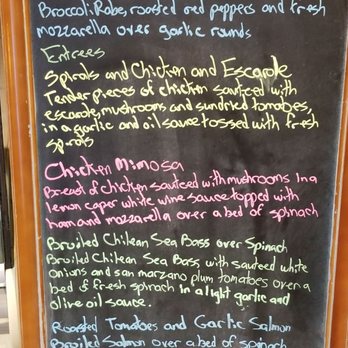 Broccoli Robe, roasted red peppers and fresh
mozzarella over garlic rounds
Entrees
Spirals and Chicken and Escarole
Tender pieces of chicken sauteed with
escarole, mushrooms and sundried tomatoes,
in a garlic and oil sauce tossed with fresh
spirals
Chicken Mimosa
Breast of chicken sauteed with mushrooms in a
lemon caper white wine sauce topped with
ham and mozzarella over a bed of spinach
Broiled Chilean Sea Bass over Spinach
Broiled Chilean Sea Bass with sauteed white
onions and san marzano plum tomatoes over a
bed of fresh spinach in a light garlic and
olive oil sauce.
Roasted Tomatoes and Garlic Salmon
Broiled Salmon over a bed of spinach